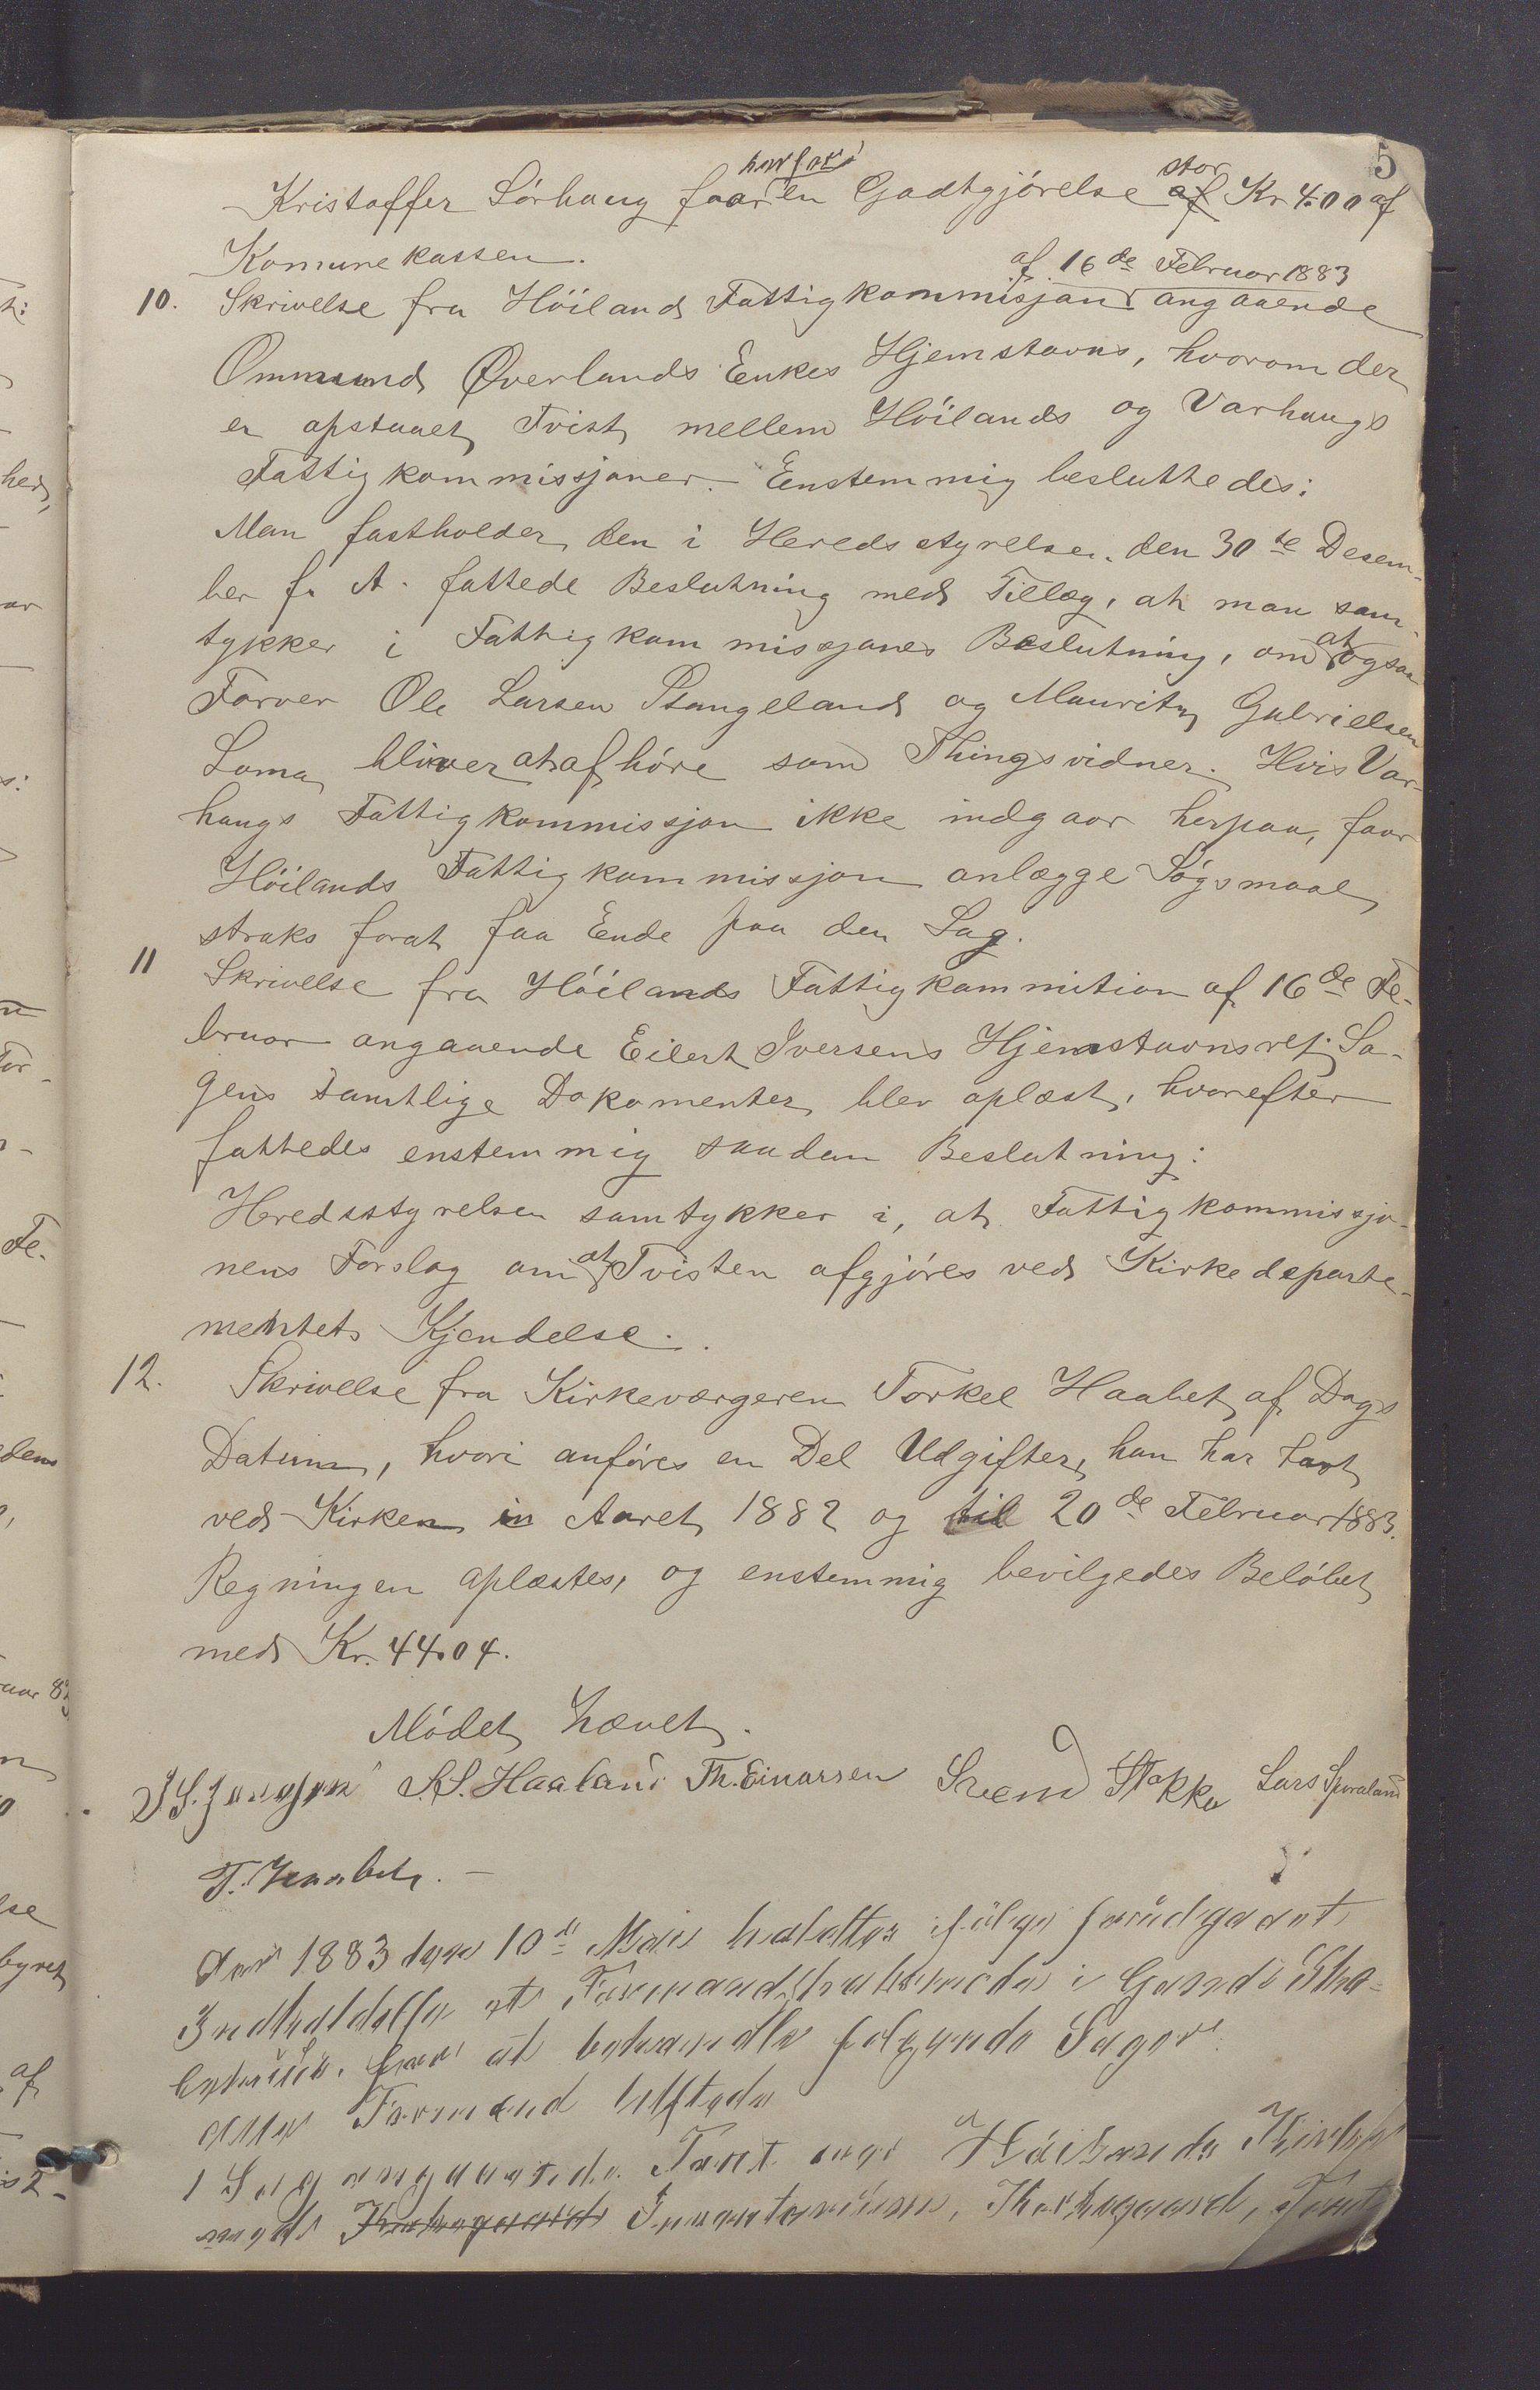 5
Kristoffer Sörhaug faar herfor en Godtgjörelse stor af Kr 4.00 af
Komunekassen.
10. Skrivelse fra Höiland Fattigkommisjon af 16de Februar 1883 angaaende
Ommund Øverlands Enkes Hjemstavns, hvorom der
er opstaaet Tvist mellem Höilands og Varhaugs
Fattigkommissjoner. Eenstemmig besluttedes:
Man fastholder den i Heredsstyrelsen den 30te Desem-
ber f. A. fattede Beslutning med Tillæg, at man sam-
tykker i Fattigkommissjones Beslutning, om at ogsaa
Farver Ole Larsen Stangeland og Mauritz Gabrielsen
Loma bliver at afhöre som Thingsvidner. Hvis Var-
haugs Fattigkommissjon ikke indgaar herpaa, faar
Höilands Fattigkommissjon anlægge Sögsmaal
straks forat faa Ende paa den Sag.
11 Skrivelse fra Höilands Fattigkommition af 16de Fe-
bruar angaaende Eilert Iversens Hjemstavnsret. Sa-
gens samtlige Dokomenter blev oplæst, hvorefter
fattedes enstemmig saadan Beslutning:
Heredsstyrelsen samtykker i, at Fattigkommissjo-
nens Forslag om at Tvisten afgjöres ved Kirkedeparte-
mentets Kjendelse.
12. Skrivelse fra Kirkeværgeren Torkel Haabet af Dags
Datum, hvori anföres en Del Udgifter, han har havt
ved Kirken in Aaret 1882 og til 20de Februar 1883.
Regningen oplæstes, og enstemmig bevilgedes Belöbet
med Kr. 44.04.
Mödet hævet.
S. S. Haaland Th. Einarsen Svend Stokke Lars Sporaland
T. Haabet.
Aar 1883 den 10de Mai holdtes ifölge forudgaaet
Indkaldelse et Formandskabsmöde i Gand Sko-
lehuus, for at behandle folgende Sager
1 Sag angaaende Taxt over Höilands Kirke
med Kirkegaard Inventarium, Kirkegaard, Tomt